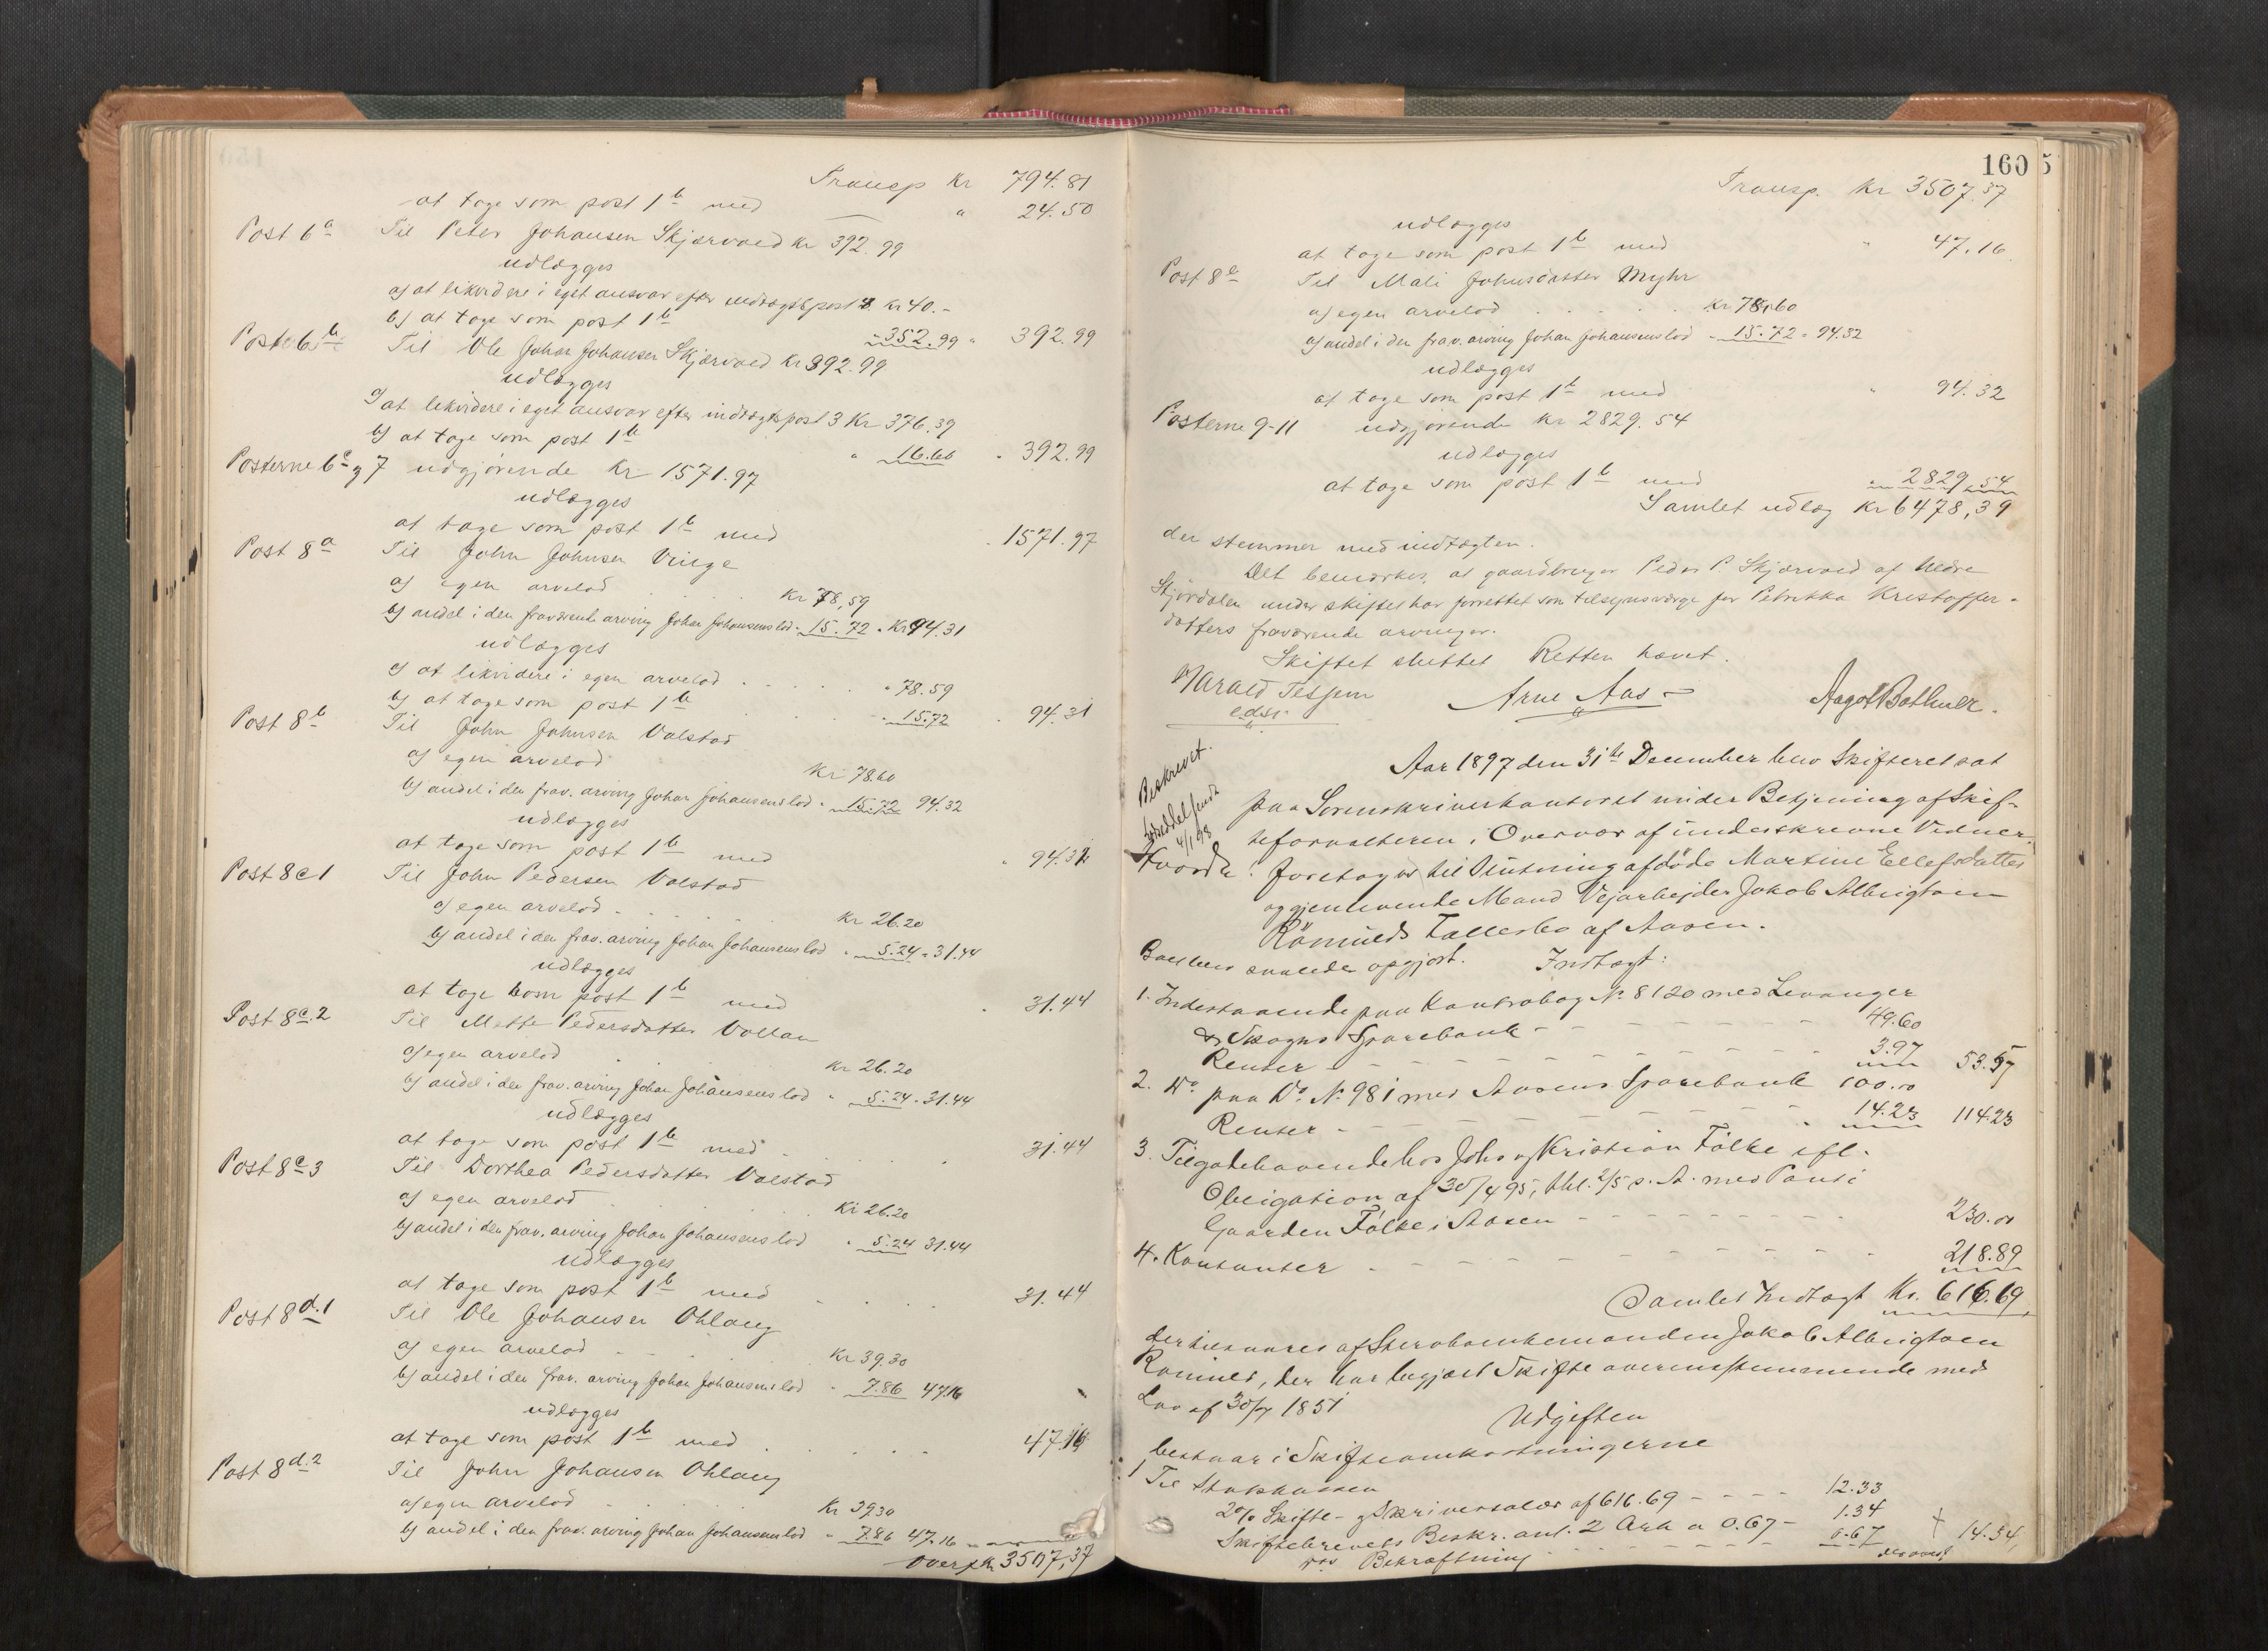 Transp Kr 794.81
at tage som post 1b med " 24.50
Post 6a Til Peter Johansen Skjærvold kr 392.99
udlægges
a) at likvidere i eget ansvar efter indtægtspost 4 kr 40.-
b) at tage som post 1b - 352.99 " 392.99
Post 6b Til Ole Johan Johansen Skjærvold Kr 392.99
udlægges
a) at likvidere i eget ansvar efter indtægtspost 3 Kr 376.39
b) at tage som post 1b " 16.60 - 392.99
Posterne 6c og 7 udgjørende Kr 1571.97
udlægges
at tage som post 1b med - 1571.97
Post 8a Til John Johnsen Vinge
a) egen arvelod Kr 78,59
b) andel i den fraværende arving Johan Johansens lod - 15.72 - Kr 94.31
udlægges
a) at likvidere i egen arvelod " 78.59
b) at tage som post 1b - 15.72 - 94.31
Post 8b Til John Johnsen Valstad
a) egen arvelod Kr 78.60
b) andel i den frav. arving Johan Johansens lod - 15.72 94.32
udlægges
at tage som post 1b med " 94.32
Post 8c1 Til John Pedersen Valstad
a) egen arvelod Kr 26.20
b) andel i den frav. arving Johan Johansens lod - 5.24 = 31.44
udlægges
at tage som post 1b med - 31.44
Post 8c.2 Til Mette Pedersdatter Vollan
a) egen arvelod Kr 26.20
b) andel i den frav. arving Johan Johansens lod " 5.24 - 31.44
udlægges
at tage som post 1b med 31.44
Post 8c3 Til Dorthea Pedersdatter Valstad
a) egen arvelod Kr 26.20
b) andel i den frav. arving Johan Johansens lod - 5.24 31.44
udlægges
at tage som post 1b med 31.44
Post 8d.1 Til Ole Johansen Øhlaug
a) egen arvelod Kr 39.30
b) andel i den frav. arving Johan Johansens lod - 7.86 47.16
udlægges
at tage som post 1b med 47.16
Post 8d.2 Til John Johansen Øhlaug
a) egen arvelod Kr 39.30
b) andel i den frav. arving Johan Johansens lod - 7.86 47.16
Overf. Kr 3507,37
160
5
Transp. Kr 3507.37
udlægges
at tage som post 1b med " 47.16
Post 8e Til Mali Johnsdatter Myhr
a) egen arvelod Kr 78,60
b) andel i den frav. arving Johan Johansens lod - 15.72 = 94.32
udlægges
at tage som post 1b med " 94.32
Posterne 9-11 udgjørende Kr 2829.54
udlægges
at tage som post 1b med 2829.54
Samlet udlæg Kr 6478,39
der stemmer med indtægten.
Det bemærkes, at gaardbruger Peder P. Skjærvold af Nedre
Skjørdalen under skiftet har forrettet som tilsynsværge for Petrikka Kristoffer-
datters fraværende arvinger.
Skiftet sluttet Retten hævet.
Harald Tessem Arne Aas Aagot Bothner.
edsv.
Aar 1897 den 31te December blev Skifteret sat
Beskrevet.
paa Sorenskriverkontoret under Betjening af Skif-
4/1 98
teforvalteren i Overvær af underskrevne Vidner
Hvorda: foretoges til Slutning afdøde Martine Ellefsdatter
og gjenlevende Mand Vejarbejder Jakob Albrigtsen
Römulds Fællesbo af Aasen.
Boet blev saaledes opgjort. Indtægt:
1. Indestaaende paa Kontrabog No 8120 med Levanger
& Skogns Sparebank - 49.60
Renter - 3.97 53.57
2. Do paa Do No 981 med Aasens Sparebank 100.00
Renter - 14.23 114.23
3. Tilgodehavende hos Johs og Kristian Fölke ifl.
Obligation af 30/4 95, thl. 2/5 s. A. med Pant i
Gaarden Fölke i Aasen - 230.00
4. Kontanter - 218.89
Samlet Indtægt Kr. 616.69
der tilsvares af Stervbosenkemanden Jakob Albrigtsen
Römuld, der har begjært Skifte overensstemmende med
Lov af 30/7 1851
Udgiften
bestaar i Skifteomkostningerne
1 Til Statskassen
2% Skifte- og Skriversalær af 616.69 - 12.33
Skiftebrevets Beskr. ant. 2 Ark a 0.67 - 1.34
Bekræftning 0.67 14.34